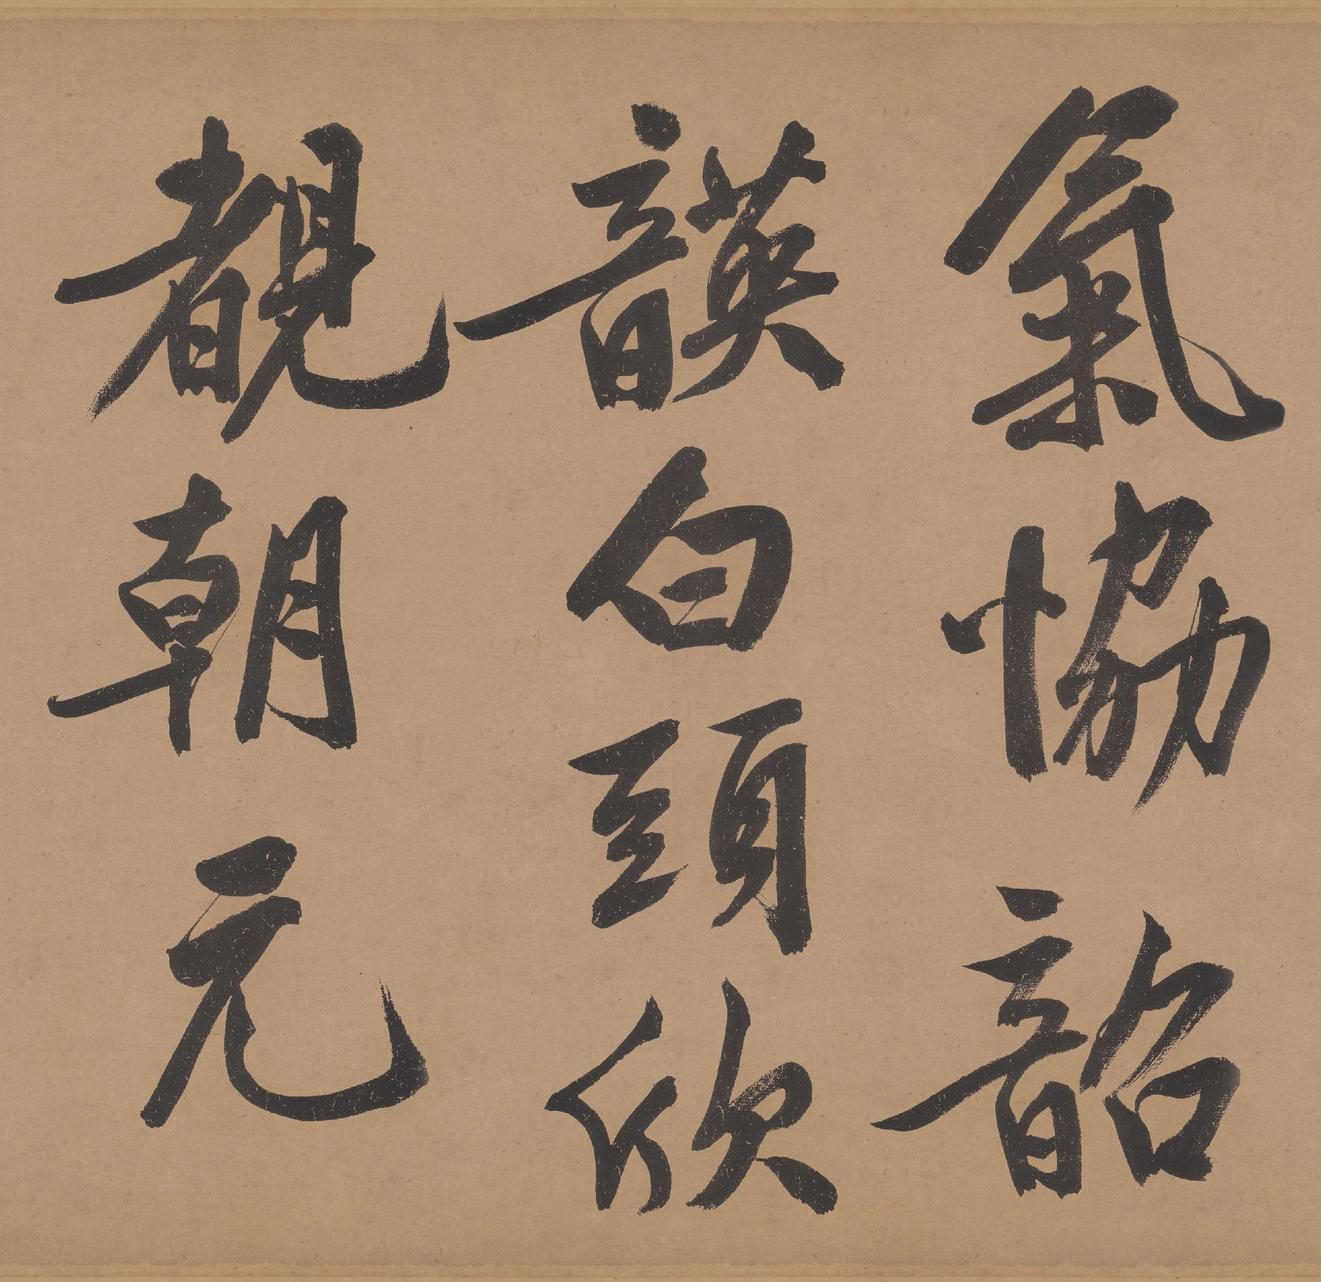 氣協韶
韺白頭欣
覩朝元